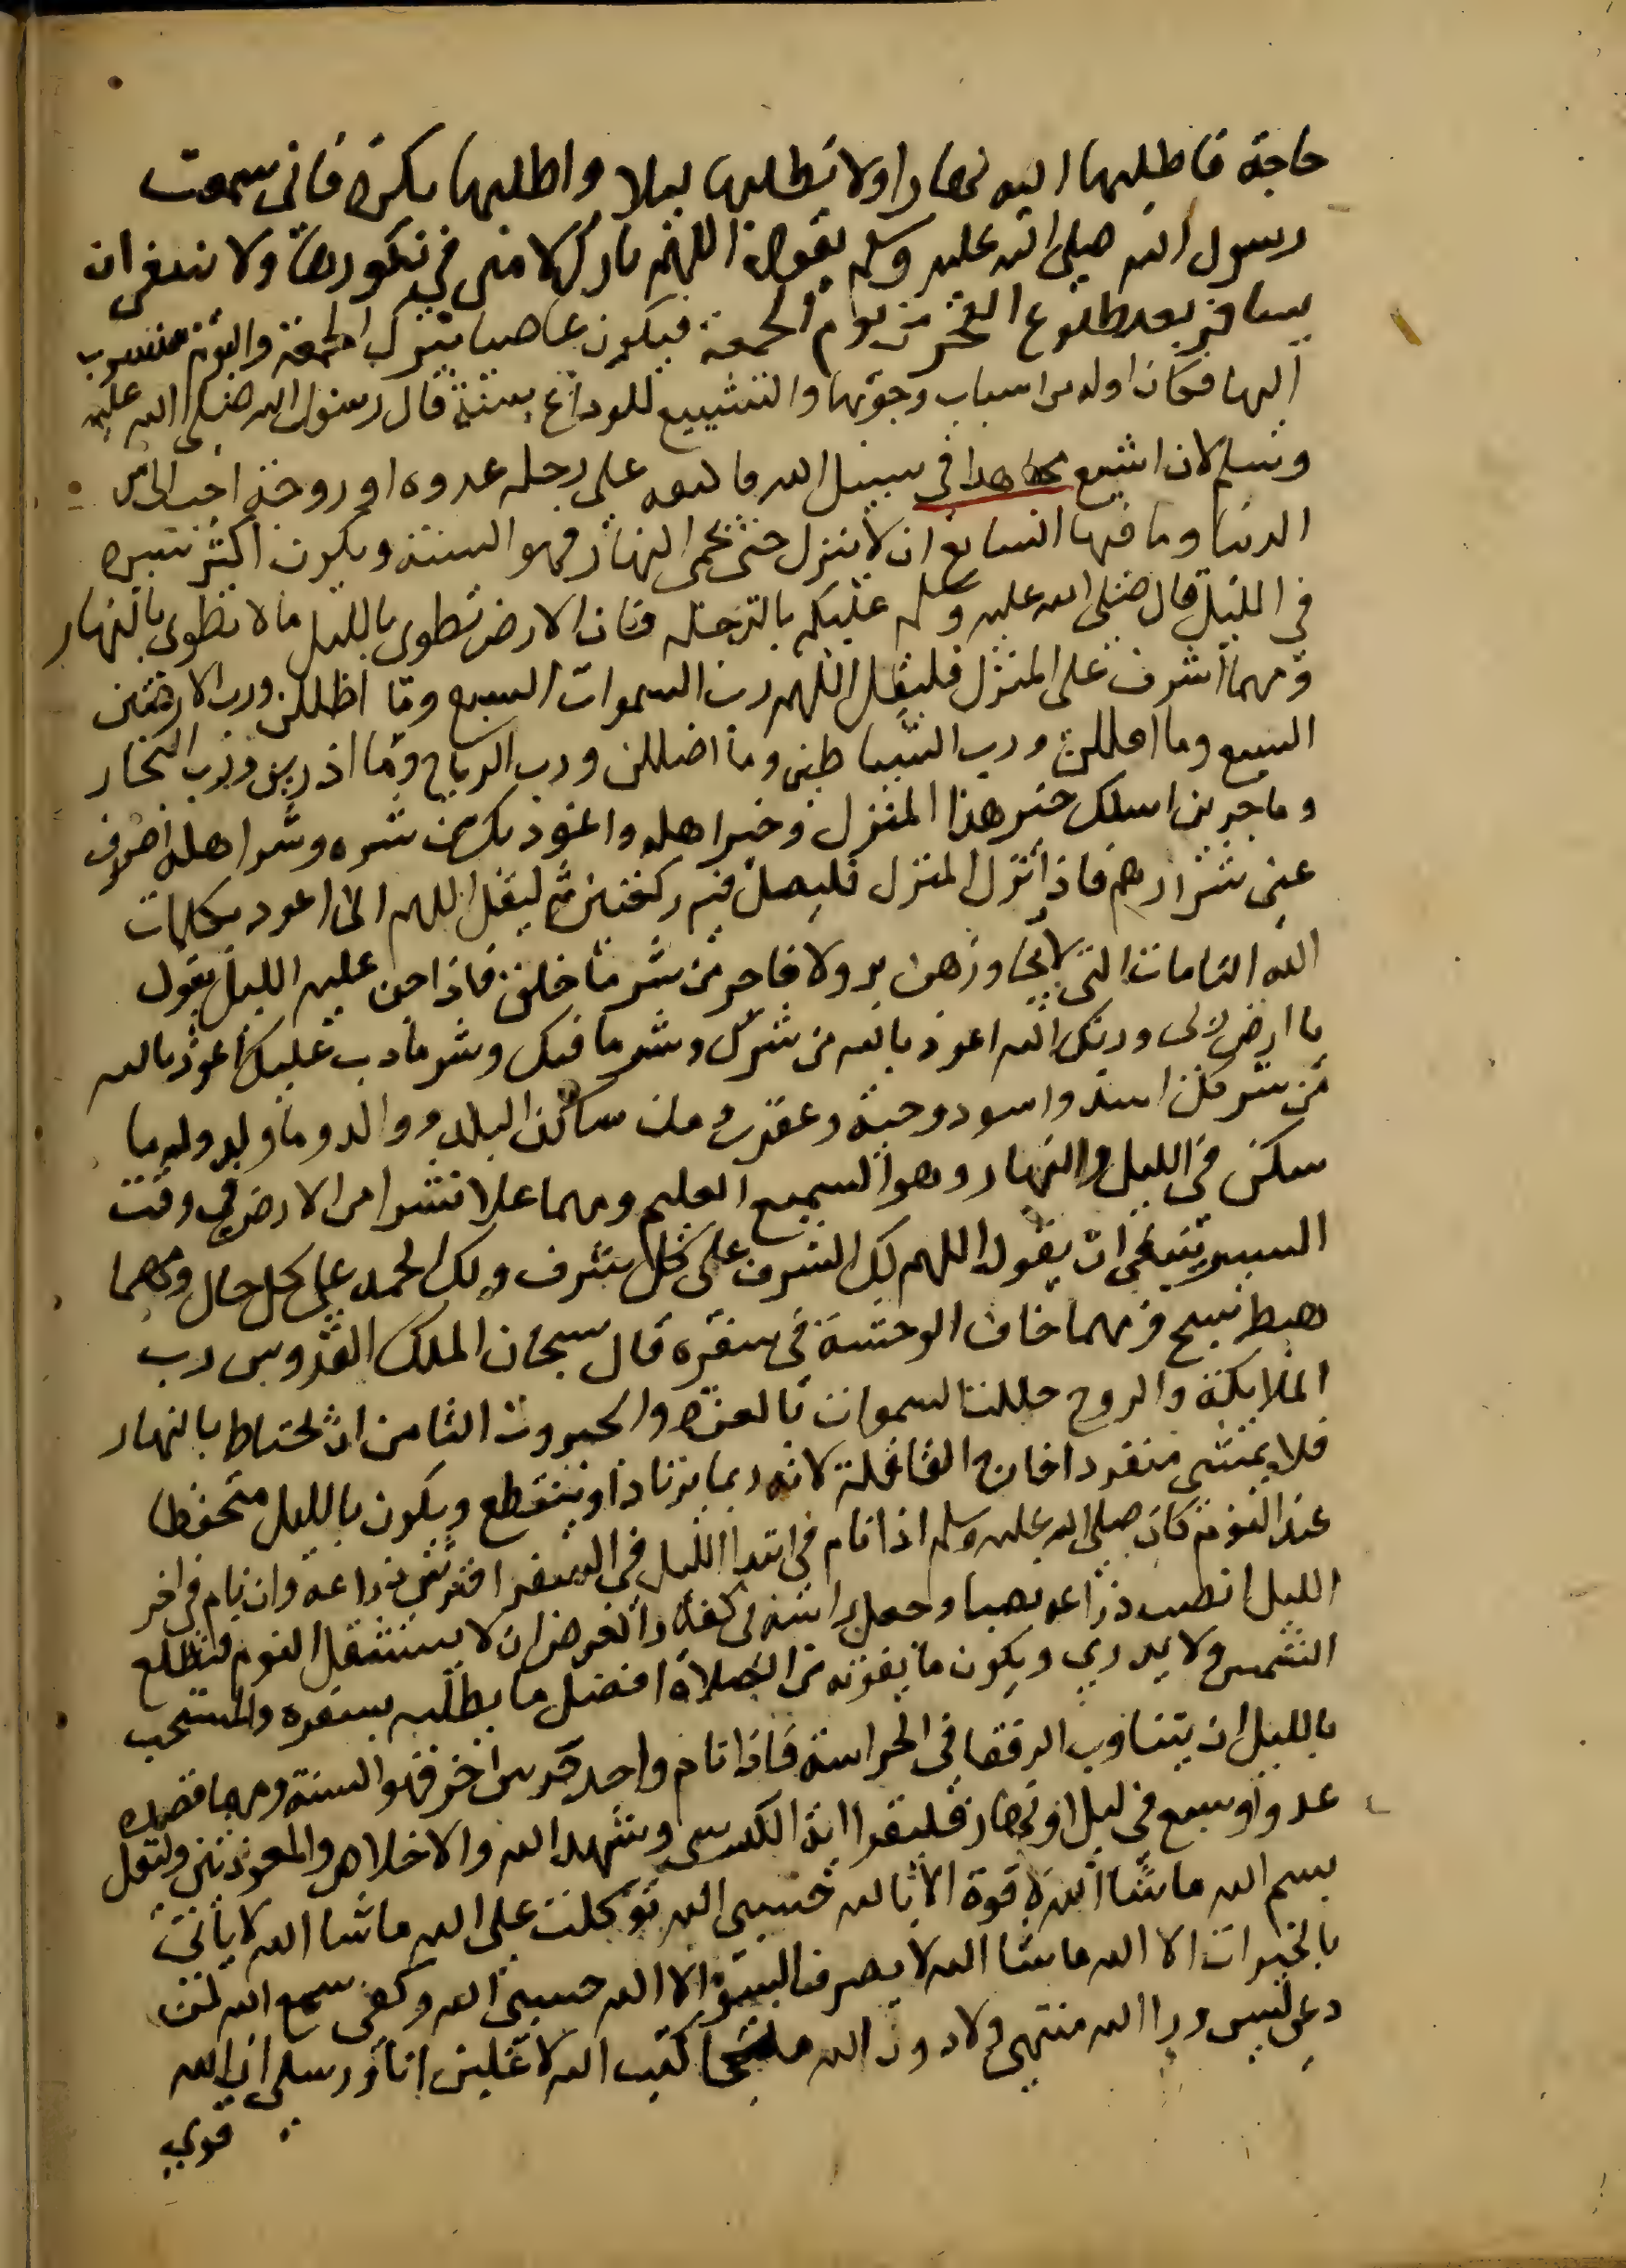 حاجة فاطلبها اليه نهارا ولا تطلبها ليلا واطلبها بكرة فانى سمعت
رسول الله صلى الله عليه وسلم يقول اللهم بارك لامتى في بكورها ولا ينبغى ان
يسافر بعد طلوع الفجر من يوم الجمعة فيكون عاصيا بترك الجمعة واليوم منسوب
اليها فكان اوله من اسباب وجوبها والتشييع للوداع سنة قال رسول الله صلى الله عليه
وسلم لان اشيع مجاهدا في سبيل الله فاكنفه على رحله غدوه او روحة احب الى من
الدنيا وما فيها السابع ان لا ينزل حتى يحمى النهار فهو السنة ويكون اكثر سيره
في الليل قال صلى الله عليه وسلم عليكم بالدلجة فان الارض تطوى بالليل ما لا تطوى بالنهار
ومهما اشرف على المنزل فليقل اللهم رب السموات السبع وما اظللن ورب الارضين
السبع وما اقللن ورب الشياطين وما اضللن ورب الرياح وما اذرين ورب البحار
وما جرين اسلك خير هذا المنزل وخير اهله واعوذ بك من شره وشر اهله اصرف
عنى شر شرارهم فاذا نزل المنزل فليصل فيه ركعتين ثم ليقل اللهم انى اعوذ بكلمات
الله التامات التى لا يجاوزهن بر ولا فاجر من شر ما خلق فاذا جن عليه الليل يقول
يا ارض ربى وربك الله اعوذ بالله من شرك وشر ما فيك وشر ما دب عليك اعوذ بالله
من شر كل اسد واسود وحية وعقرب ومن ساكن البلد ووالد وما ولد وله ما
سكن في الليل والنهار وهو السميع العليم ومهما علا نشزا من الارض في وقت
السير ينبغى ان يقول اللهم لك الشرف على كل شرف ولك الحمد على كل حال ومهما
هبط سبح ومهما خاف الوحشة في سفره قال سبحان الملك القدوس رب
الملايكة والروح جللت السموات بالعزة والجبروت الثامن ان يحتاط بالنهار
فلا يمشى منفردا خارج القافلة لانه ربما يغتال او ينقطع ويكون بالليل متحفظا
عند النوم كان صلى الله عليه وسلم اذا نام في ابتدا الليل في السفر افترش ذراعه وان نام في اخر
الليل نصب ذراعه نصبا وجعل راسه في كفه والغرض ان لا يستثقل النوم فتطلع
الشمس ولا يدري ويكون ما يفوته من الصلاة افضل ما يطلبه بسفره والمستحب
بالليل ان يتناوب الرفقا في الحراسة فاذا نام واحد حرس اخر فهو السنة ومهما قصده
عدو او سبع في ليل او نهار فليقرا اية الكرسى وشهد الله والاخلاص والمعوذتين وليقل
بسم الله ما شا الله لا قوة الا بالله حسبى الله توكلت على الله ما شا الله لا يأتى
بالخيرات الا الله ما شا الله لا يصرف السوء الا الله حسبى الله وكفى سمع الله لمن
دعى ليس ورا الله منتهى ولا دون الله ملجا كتب الله لاغلبن انا ورسلى ان الله
قوي